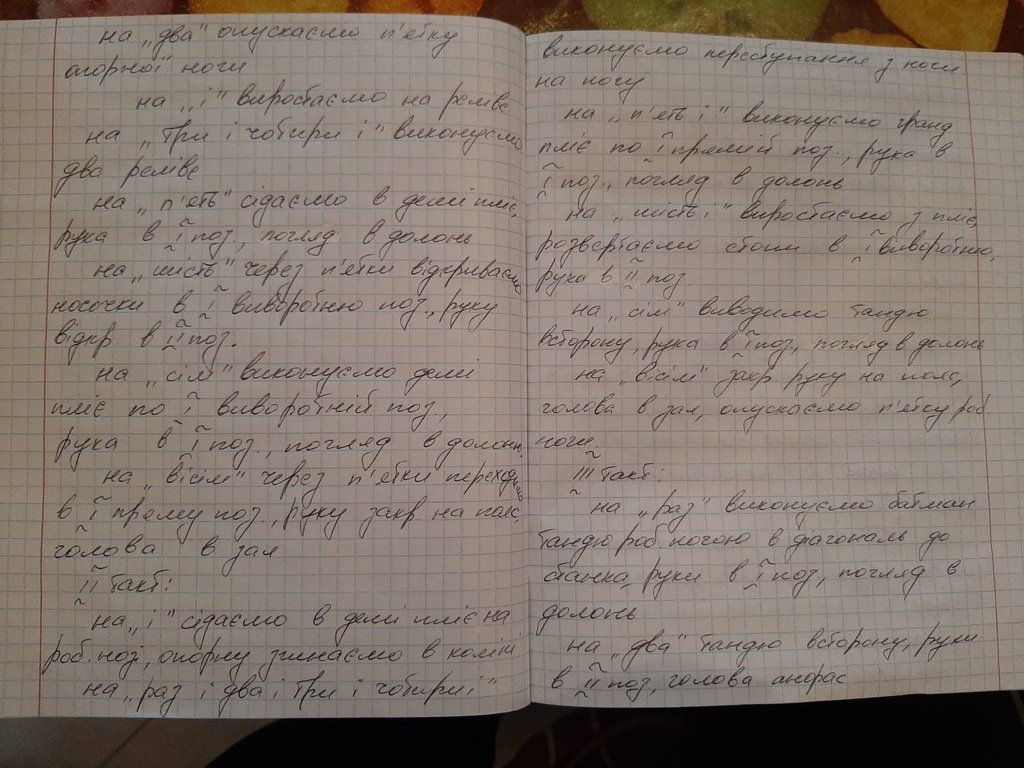 на „два" опускаємо п'ятку
опорної ноги
на „і" виростаємо на релівє
на „три і чотири і" виконуємо
два релівє
на „п'ять" сідаємо в демі пліє,
рука в І поз., погляд в долонь
на „шість" через п'ятки відкриваємо
носочки в І виворотню поз., руку
відкр. в ІІ поз.
на „сім" виконуємо демі
пліє по І виворотній поз.,
рука в І поз., погляд в долонь.
на „вісім" через п'ятки переходимо
в І пряму поз., руку закр на пояс,
голова в зал
ІІ такт:
на „і" сідаємо в демі пліє на
роб. нозі, опорну згинаємо в коліні
на „раз і два і три і чотири і"
виконуємо переступання з ноги
на ногу
на „п'ять і" виконуємо гранд
пліє по І прямій поз., рука в
І поз., погляд в долонь
на „шість і" виростаємо з пліє,
розвертаємо стопи в І виворотню,
рука в ІІ поз.
на „сім" виводимо тандю
всторону, рука в І поз., погляд в долонь
на „вісім" закр руку на пояс,
голова в зал, опускаємо п'ятку роб.
ноги.
ІІІ такт:
на „раз" виконуємо батман
тандю роб. ногою в діагональ до
станка, руки в І поз., погляд в
долонь
на „два" тандю всторону, руки
в ІІ поз., голова анфас